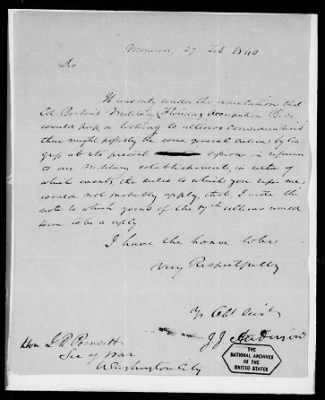 27 Feb 1840
Sir
It was only under the expectation that
Col. Military Occupation Bill
would pass, looking to
there might possibly be some general action by Con
gress at its present session in reference
to our Military establishments, in either of
which events, the rules to which you refer me
would not probably apply, that I wrote the
note to which yours of the 17th ultimo would
seem to be a reply
I have the honor to be
Very Respectfully
Yr Obt Servt
J. J. Anderson
Hon J R Poinsett
Sec of War
Washington City
THE
NATIONAL ARCHIVES
OF THE
UNITED STATES